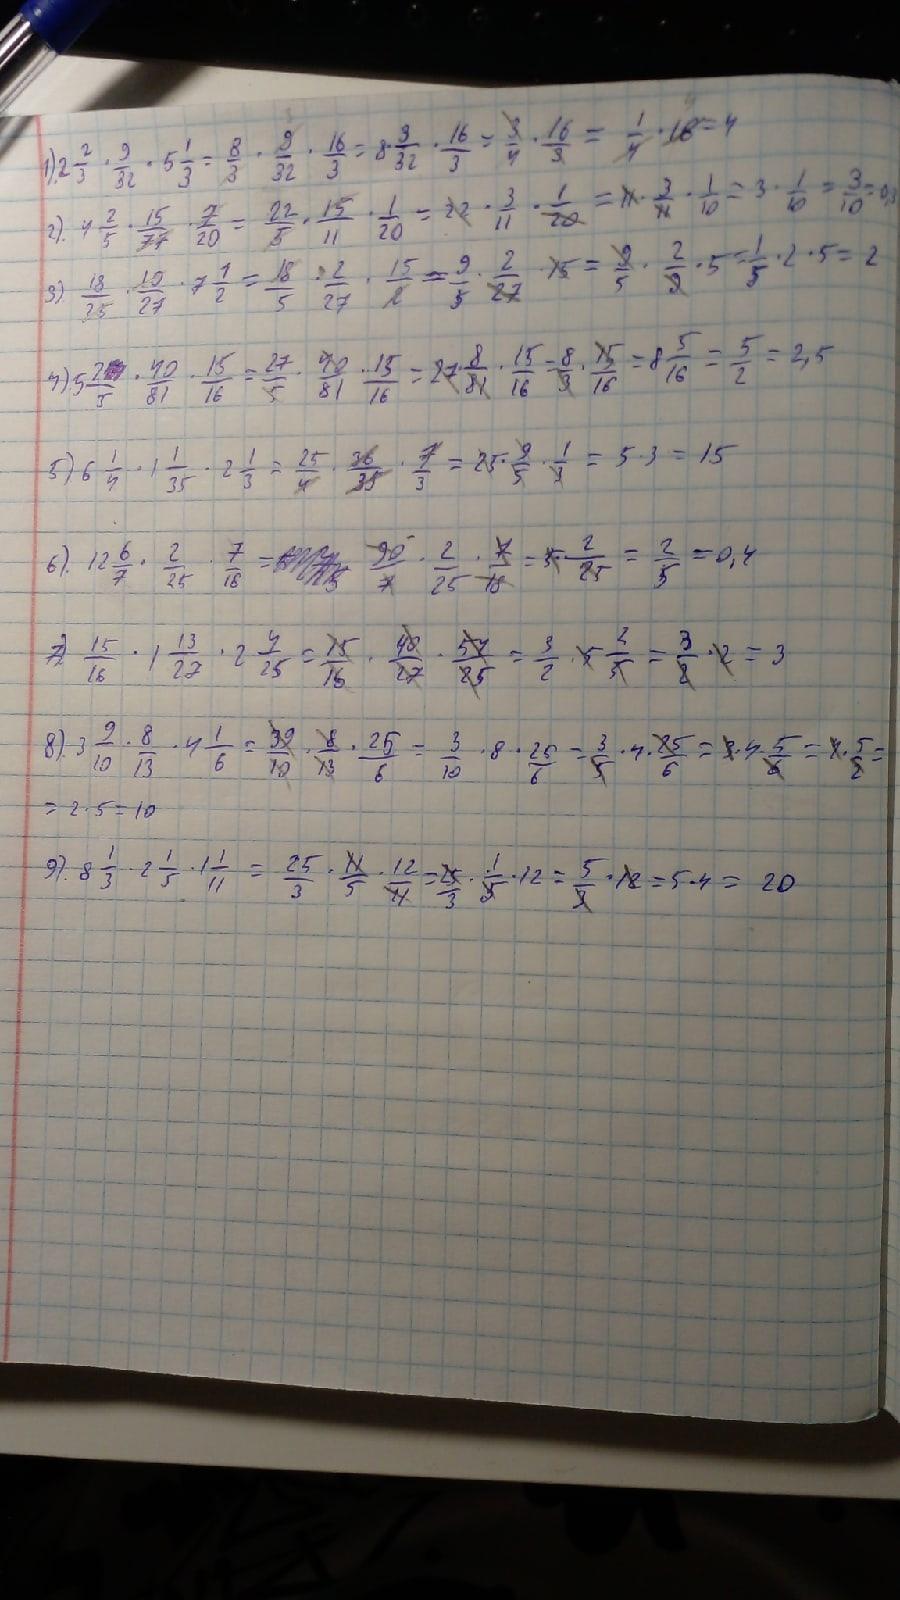 1). 2 2/3 · 9/32 · 5 1/3 = 8/3 · 9/32 · 16/3 = 8 · 3/32 · 16/3 = 3/4 · 16/3 = 1/4 · 16 = 4
2). 4 2/5 · 15/77 · 7/20 = 22/5 · 15/11 · 1/20 = 22 · 3/11 · 1/20 = 11 · 3/11 · 1/10 = 3 · 1/10 = 3/10 = 0,3
3) 18/25 · 10/27 · 7 1/2 = 18/5 · 2/27 · 15/2 = 9/5 · 2/27 · 15 = 9/5 · 2/9 · 5 = 1/5 · 2 · 5 = 2
4) 5 2/5 · 40/81 · 15/16 = 27/5 · 40/81 · 15/16 = 27 · 8/81 · 15/16 = 8/3 · 15/16 = 8 5/16 = 5/2 = 2,5
5) 6 1/4 · 1 1/35 · 2 1/3 = 25/4 · 36/35 · 7/3 = 25 · 9/5 · 1/3 = 5 · 3 = 15
6). 12 6/7 · 2/25 · 7/18 = 90/7 · 2/25 · 7/18 = 5 · 2/25 = 2/5 = 0,4
7) 15/16 · 1 13/27 · 2 4/25 = 15/16 · 40/27 · 54/25 = 3/2 · 5 · 2/5 = 3/2 · 2 = 3
8). 3 9/10 · 8/13 · 4 1/6 = 39/10 · 8/13 · 25/6 = 3/10 · 8 · 25/6 = 3/5 · 4 · 25/6 = 3 · 4 · 5/6 = 4 · 5/2 =
= 2 · 5 = 10
9). 8 1/3 · 2 1/5 · 1 1/11 = 25/3 · 11/5 · 12/11 = 25/3 · 1/5 · 12 = 5/3 · 12 = 5 · 4 = 20